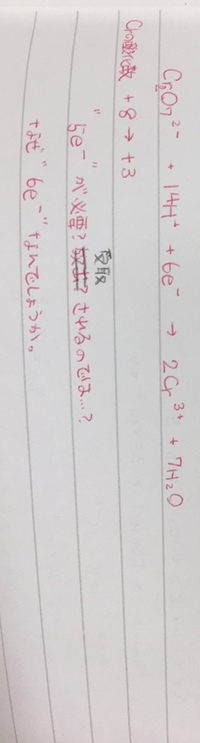 Cr₂O₇²⁻ + 14H⁺ + 6e⁻ → 2Cr³⁺ + 7H₂O
Crの酸化数 +8 → +3
受取
"5e⁻" が必要? されるのでは…?
なぜ "6e⁻" なんでしょうか。